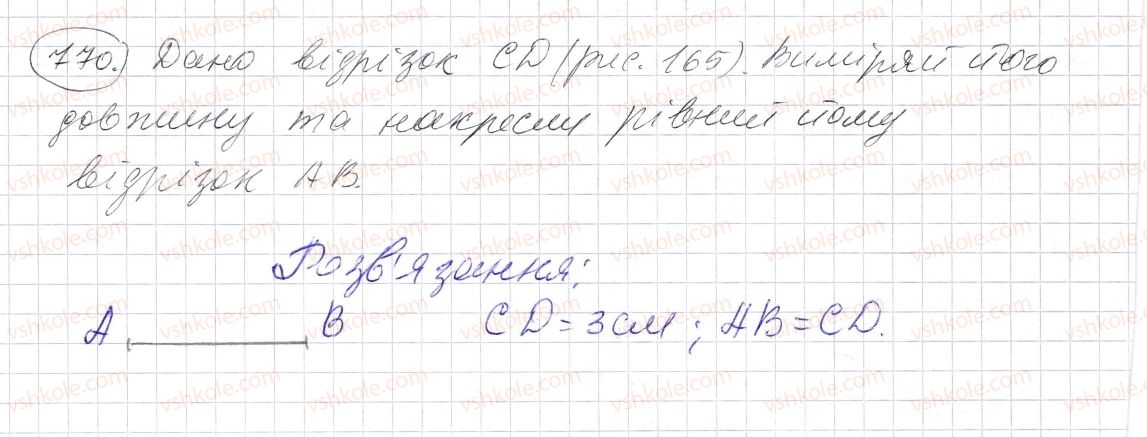 770. Дано відрізок CD (рис. 165). Виміряй його
довжину та накресли рівний йому
відрізок AB.
Розв'язання:
A B CD = 3 см; AB = CD.